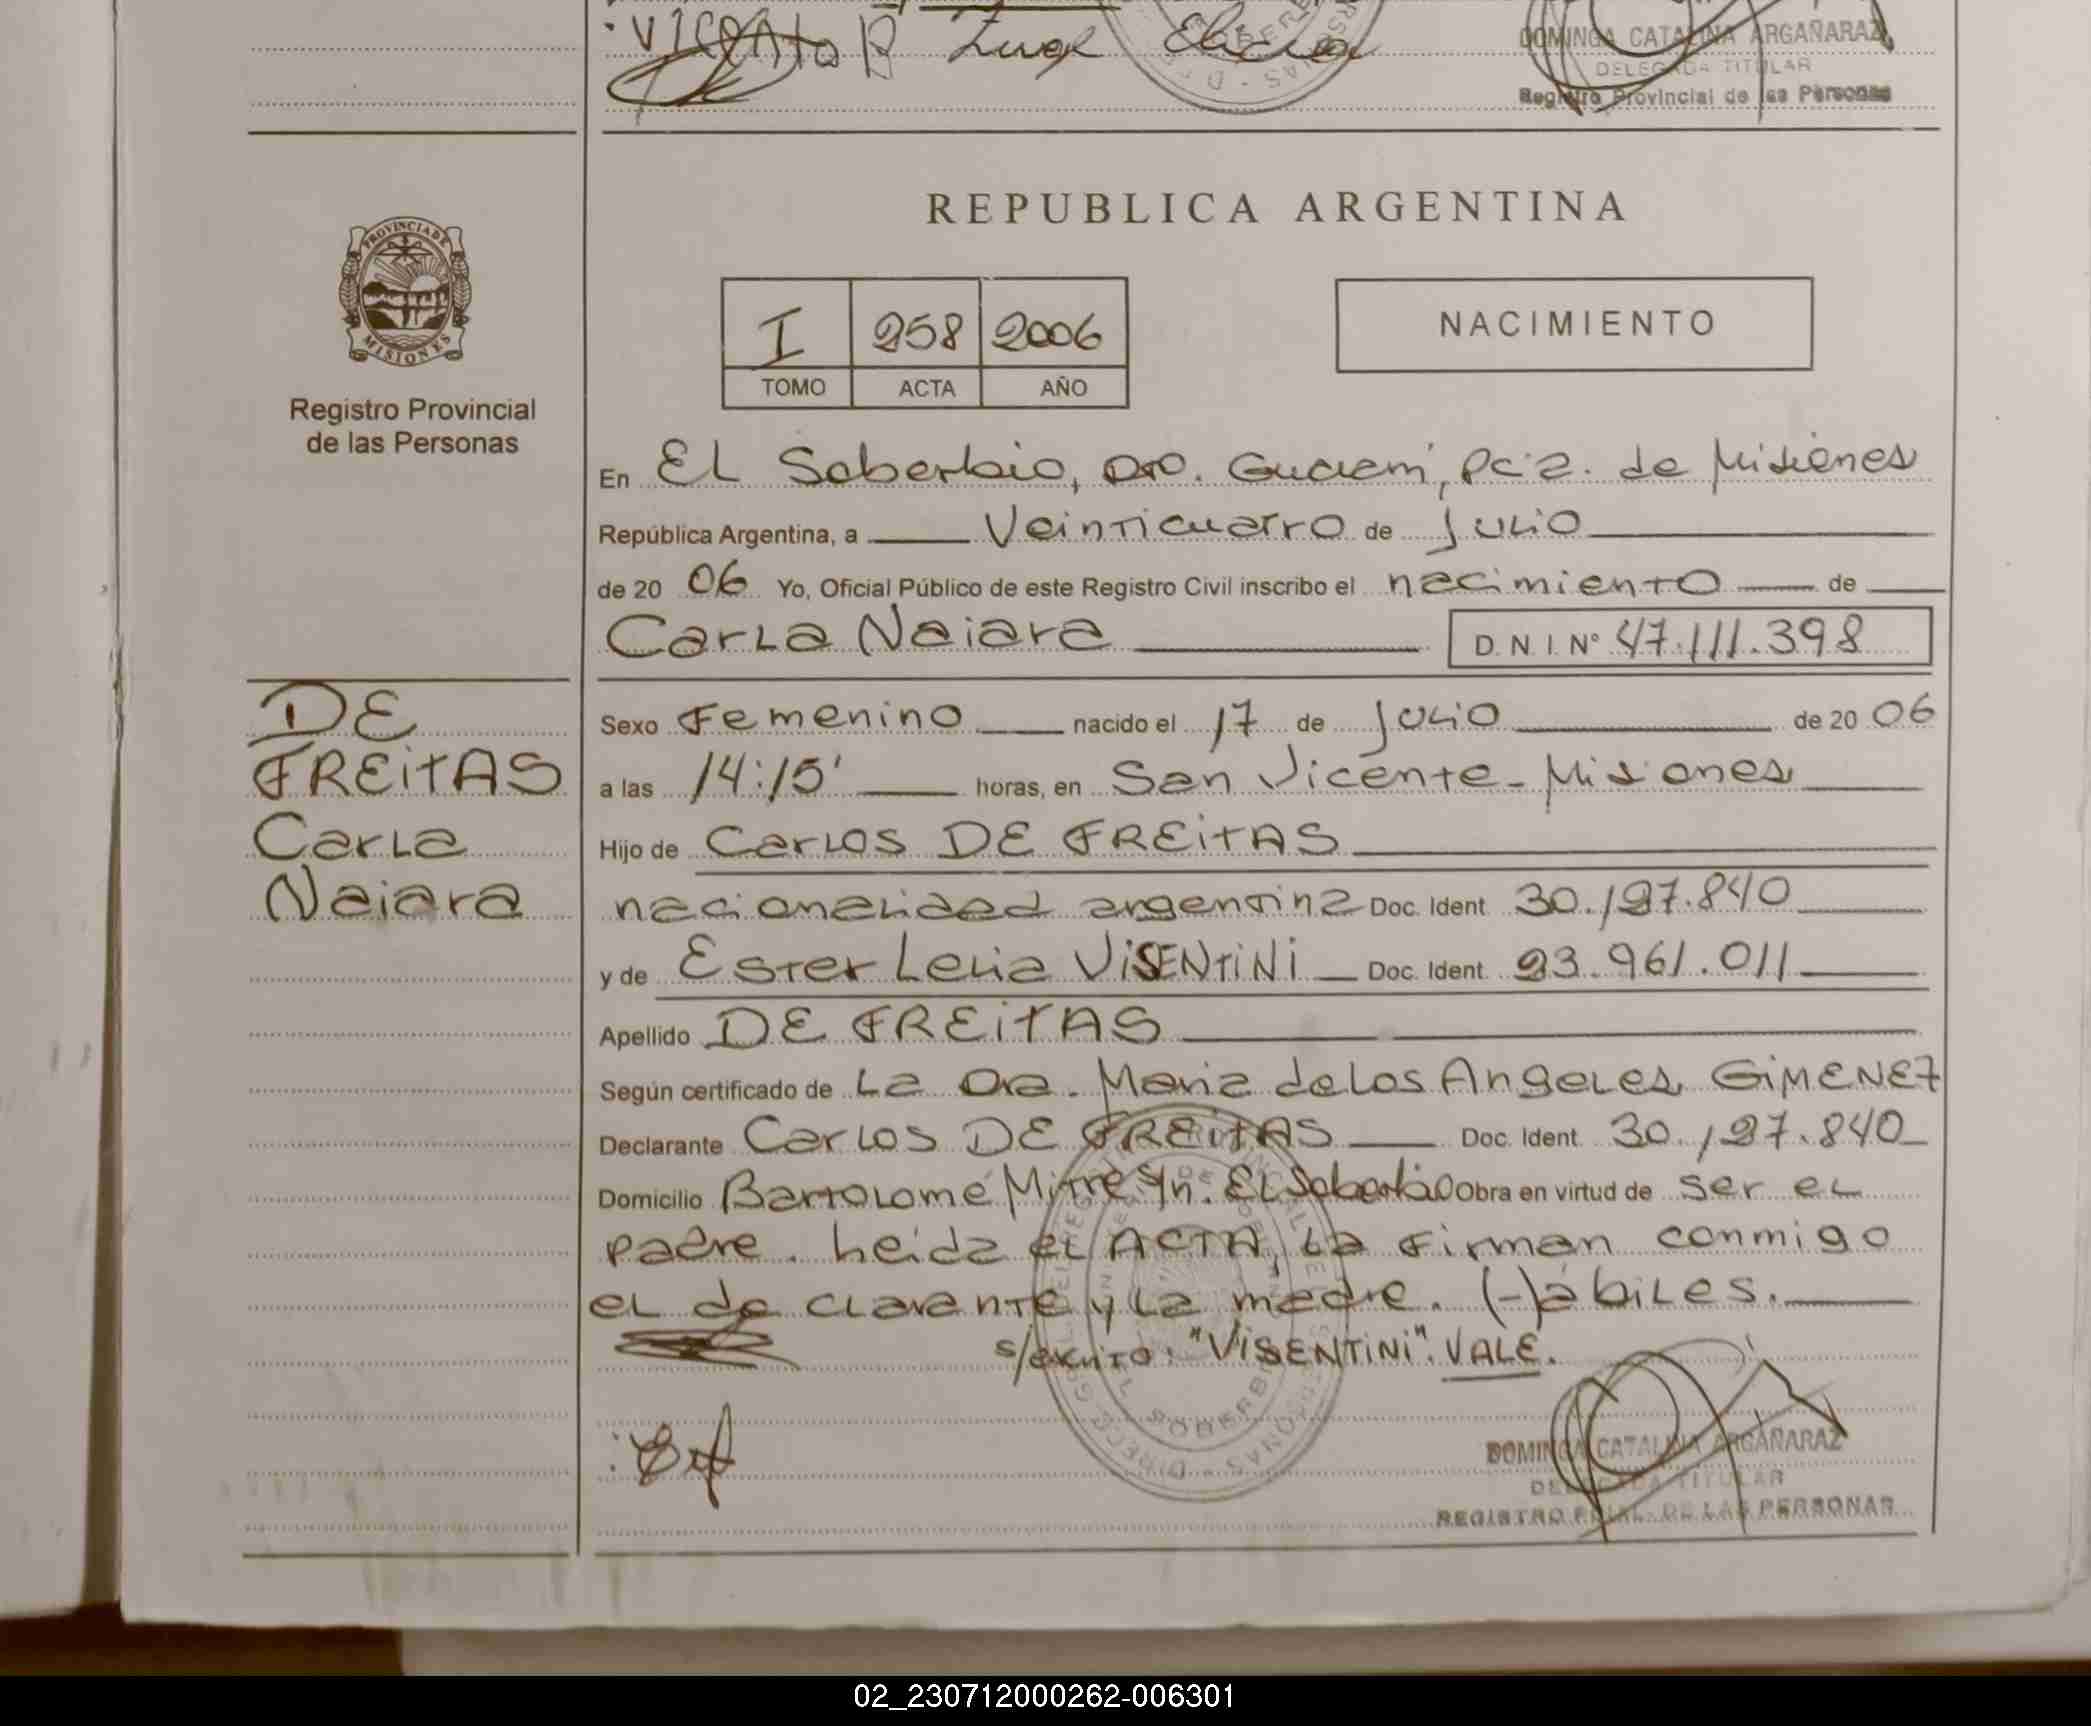 VICENTO R Luge
DOMINGA CATALINA ARGAÑARAZ
DELEGADA TITULAR
Registro Provincial de las Personas
REPUBLICA ARGENTINA
PROVINCIA DE
MISIONES
Registro Provincial
de las Personas
I 258 2006
TOMO ACTA AÑO
NACIMIENTO
En El Soberbio, Dpto. Guaraní, Pcia. de Misiones
República Argentina, a Veinticuatro de Julio
de 20 06 Yo, Oficial Público de este Registro Civil inscribo el nacimiento de
Carla Naiara D.N.I. Nº 47.111.398
DE
FREITAS
Carla
Naiara
Sexo Femenino nacido el 17 de Julio de 20 06
a las 14:15' horas, en San Vicente - Misiones
Hijo de Carlos DE FREITAS
nacionalidad argentina Doc. Ident. 30.197.840
y de Ester Lelia VISENTINI Doc. Ident. 23.961.011
Apellido DE FREITAS
Según certificado de La Dra. Maria de Los Angeles GIMENEZ
Declarante Carlos DE FREITAS Doc. Ident. 30.197.840
Domicilio Bartolomé Mitre s/n. El Soberbio Obra en virtud de ser el
padre. Leida el ACTA, la firman conmigo
el declarante y la madre. (-)ábiles.
s/escrito: "VISENTINI". VALE.
DOMINGA CATALINA ARGAÑARAZ
DELEGADA TITULAR
REGISTRO PCIAL. DE LAS PERSONAS
02_230712000262-006301